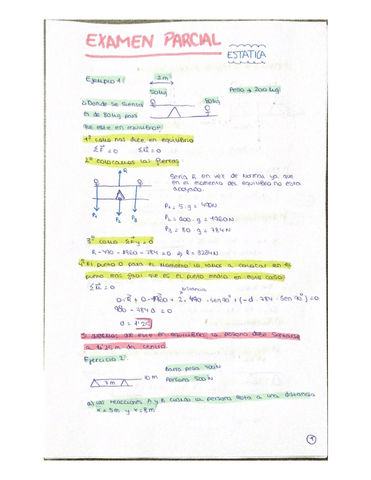 EXAMEN PARCIAL
ESTÁTICA
Ejemplo 1:
2m
Peso = 200kg
50kg
80kg
¿Donde se sienta
el de 80kg para
que este en equilibrio?
1º como nos dice en equilibrio
ΣF=0 ΣM=0
2º colocamos las fuerzas
R
Sería R en vez de Normal ya que
en el momento del equilibrio no esta
apoyado.
P1 P2 P3
P1 = 5·g = 490N
P2 = 200·g = 1960N
P3 = 80·g = 784N
3º como ΣFy=0
R-490-1960-784=0 R=3234N
4º El punto O para el momento lo vamos a colocar en el
punto mas fácil que es el punto medio en este caso:
ΣM=0
distancia
0·R + 0·1960 + 2·490·sen90º + (-d·784·sen90º)=0
980-784d=0
d=1.25
Si queremos que este en equilibrio la persona debe sentarse
a 1.25m del centro.
Ejercicio 2:
Barra pesa 400N
10m
7m
Persona 500N
a) las reacciones A y B cuando la persona esta a una distancia
x=5m y x=8m
1